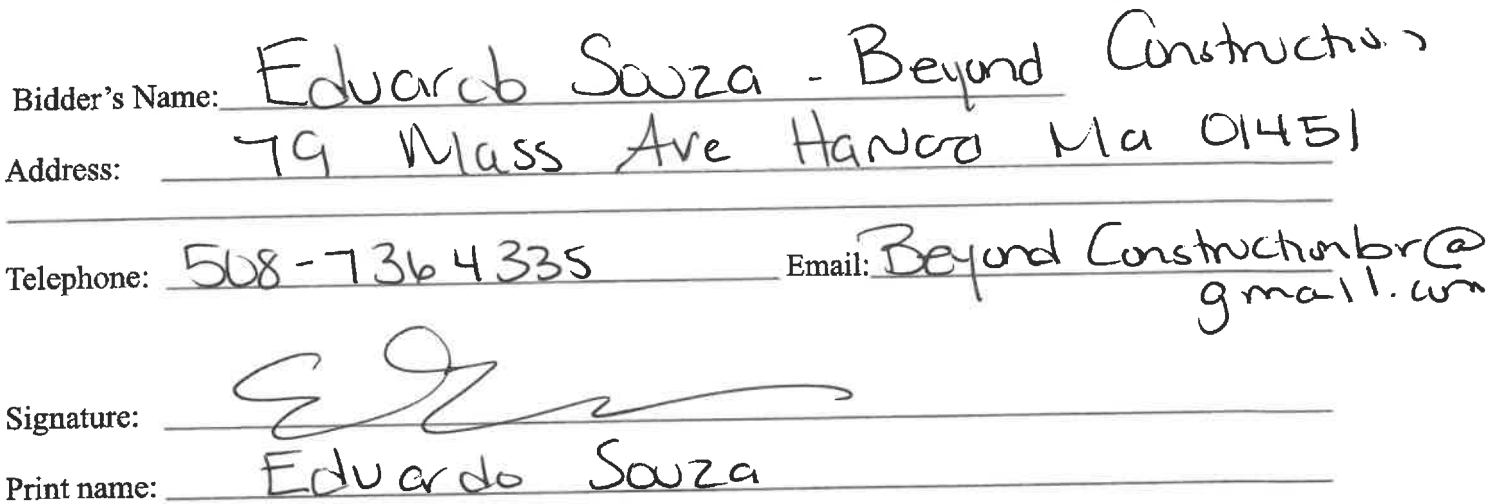 Bidder's Name: Eduardo Souza - Beyond Construction
Address: 79 Mass Ave Ma 01451
Telephone: 508-736 4335 Email: Beyond Constructionbr@
gmail.com
Signature:
Print name: Eduardo Souza